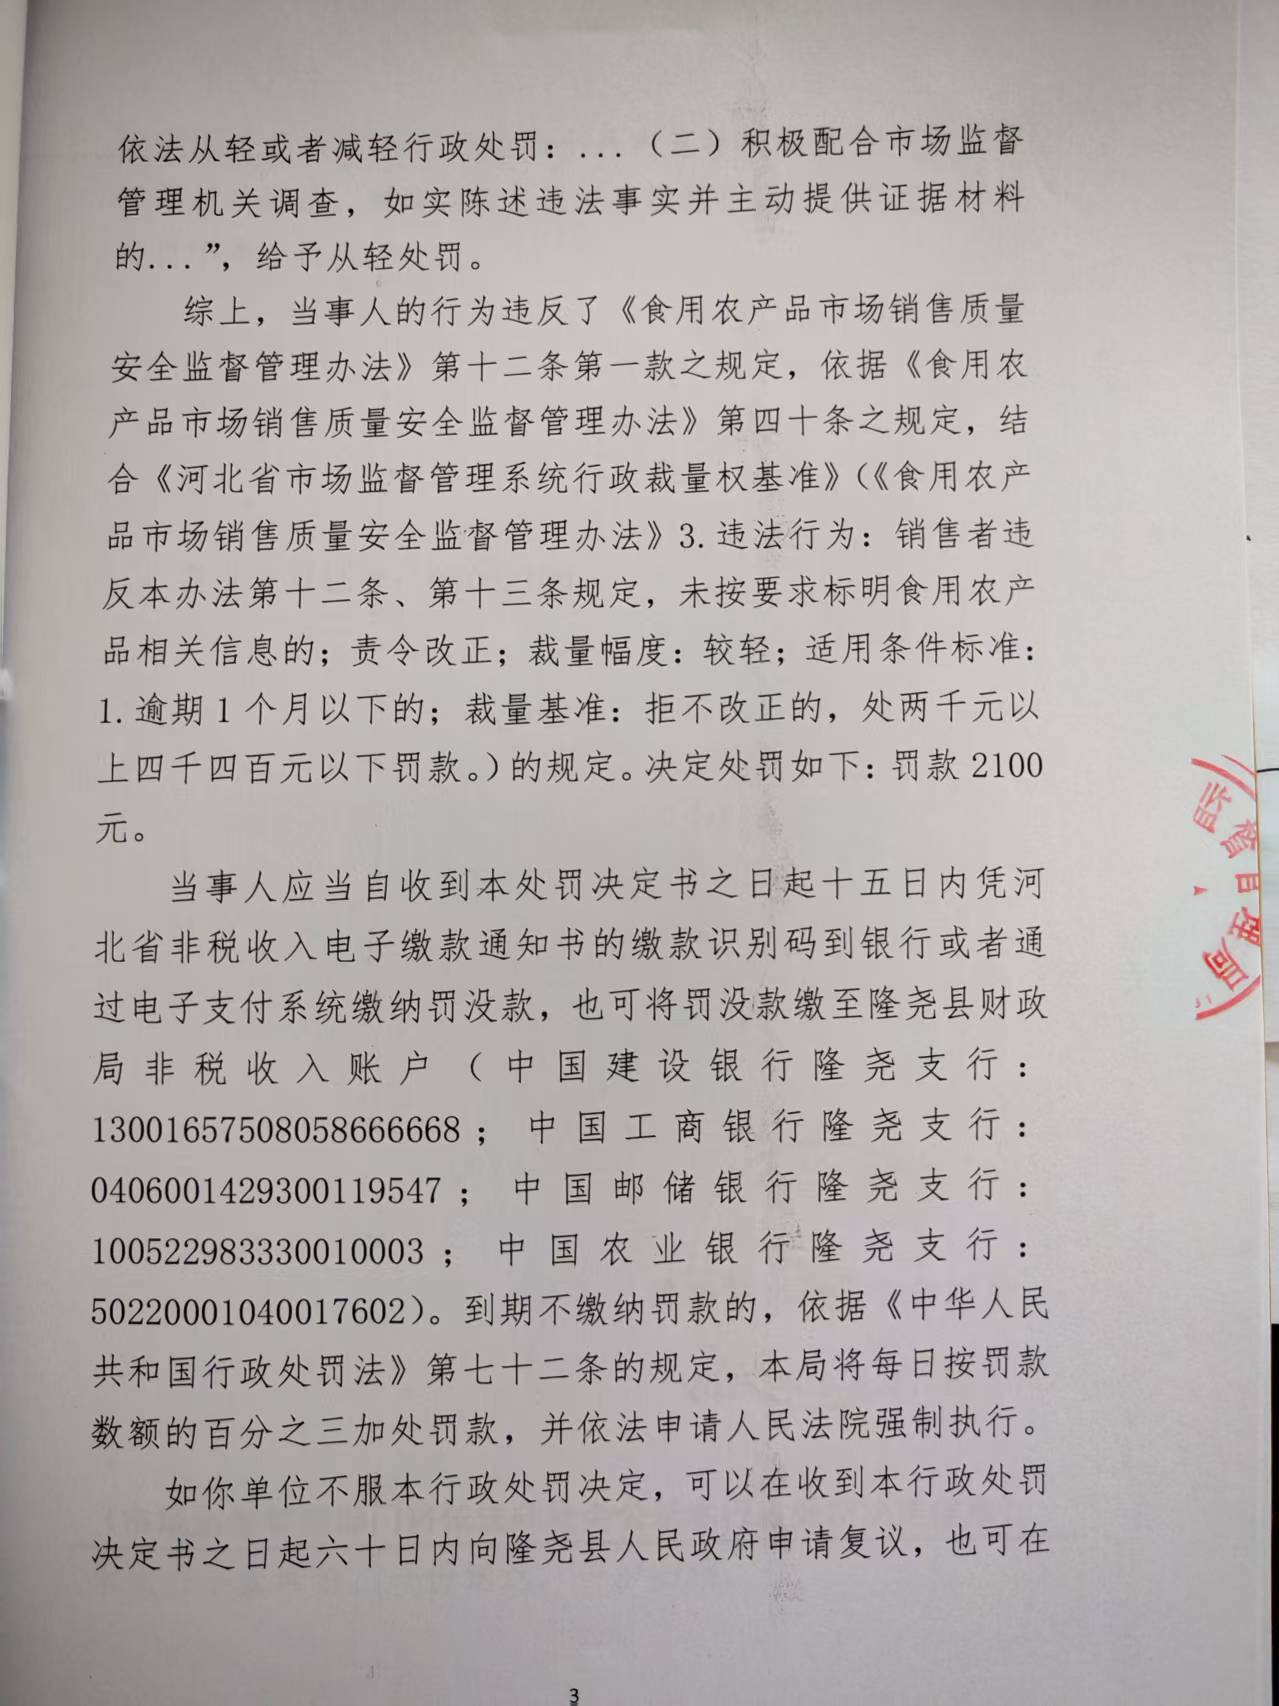 依法从轻或者减轻行政处罚：...（二）积极配合市场监督
管理机关调查，如实陈述违法事实并主动提供证据材料
的...”，给予从轻处罚。
综上，当事人的行为违反了《食用农产品市场销售质量
安全监督管理办法》第十二条第一款之规定，依据《食用农
产品市场销售质量安全监督管理办法》第四十条之规定，结
合《河北省市场监督管理系统行政裁量权基准》(《食用农产
品市场销售质量安全监督管理办法》3.违法行为：销售者违
反本办法第十二条、第十三条规定，未按要求标明食用农产
品相关信息的；责令改正；裁量幅度：较轻；适用条件标准：
1.逾期1个月以下的；裁量基准：拒不改正的，处两千元以
上四千四百元以下罚款。)的规定。决定处罚如下：罚款2100
元。
当事人应当自收到本处罚决定书之日起十五日内凭河
北省非税收入电子缴款通知书的缴款识别码到银行或者通
过电子支付系统缴纳罚没款，也可将罚没款缴至隆尧县财政
局非税收入账户（中国建设银行隆尧支行：
13001657508058666668；中国工商银行隆尧支行：
0406001429300119547；中国邮储银行隆尧支行：
100522983330010003；中国农业银行隆尧支行：
50220001040017602)。到期不缴纳罚款的，依据《中华人民
共和国行政处罚法》第七十二条的规定，本局将每日按罚款
数额的百分之三加处罚款，并依法申请人民法院强制执行。
如你单位不服本行政处罚决定，可以在收到本行政处罚
决定书之日起六十日内向隆尧县人民政府申请复议，也可在
3
监督管理局